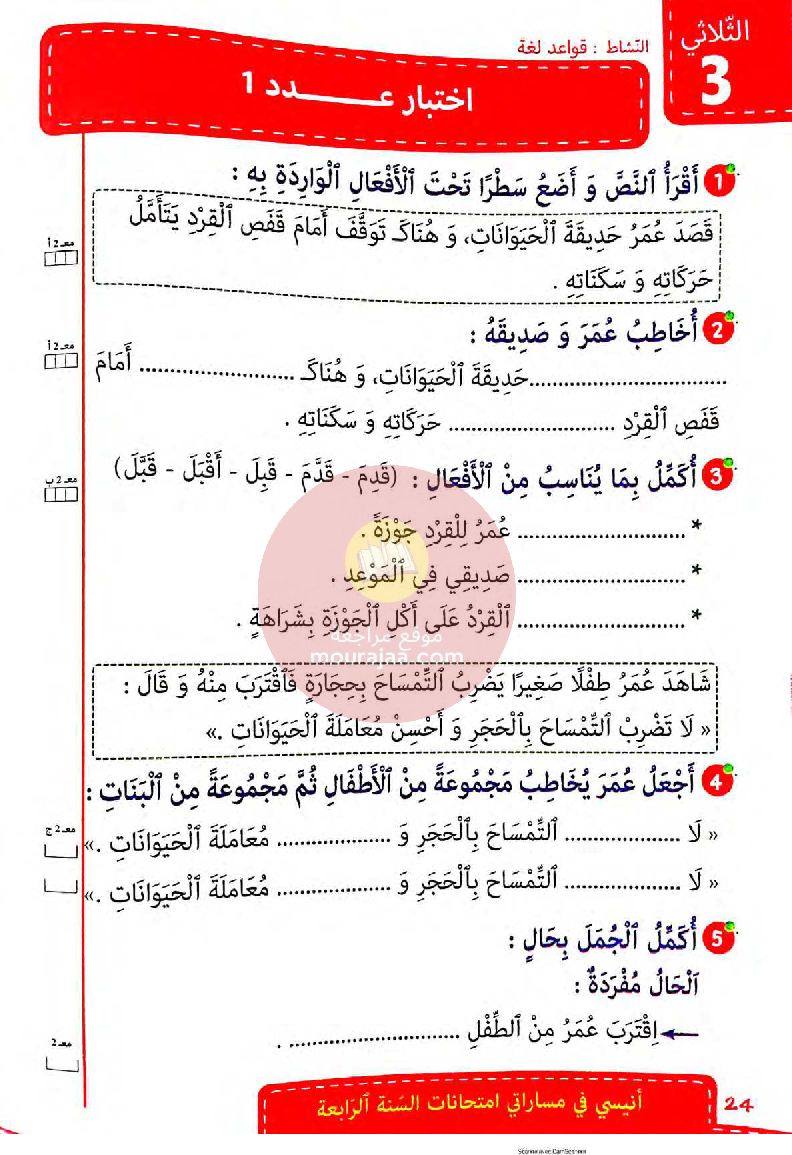 الثّلاثي
3
النّشاط : قواعد لغة
اختبار عـــــدد 1
1 أَقْرَأُ ٱلنَّصَّ وَ أَضَعُ سَطْرًا تَحْتَ ٱلْأَفْعَالِ ٱلْوَارِدَةِ بِهِ :
معـ2 أ
قَصَدَ عُمَرُ حَدِيقَةَ ٱلْحَيَوَانَاتِ، وَ هُنَاكَـ تَوَقَّفَ أَمَامَ قَفَصِ ٱلْقِرْدِ يَتَأَمَّلُ
حَرَكَاتِهِ وَ سَكَنَاتِهِ .
2 أُخَاطِبُ عُمَرَ وَ صَدِيقَهُ :
معـ2 أ
.................................حَدِيقَةَ ٱلْحَيَوَانَاتِ، وَ هُنَاكَـ ......................... أَمَامَ
قَفَصِ ٱلْقِرْدِ ........................... حَرَكَاتِهِ وَ سَكَنَاتِهِ .
3 أُكَمِّلُ بِمَا يُنَاسِبُ مِنْ ٱلْأَفْعَالِ : (قَدِمَ - قَدَّمَ - قَبِلَ - أَقْبَلَ - قَبَّلَ)
معـ2 ب
* ........................... عُمَرُ لِلْقِرْدِ جَوْزَةً .
* ........................... صَدِيقِي فِي ٱلْمَوْعِدِ .
* ........................... ٱلْقِرْدُ عَلَى أَكْلِ ٱلْجَوْزَةِ بِشَرَاهَةٍ .
موقع مراجعة
mourajaa.com
شَاهَدَ عُمَرُ طِفْلًا صَغِيرًا يَضْرِبُ ٱلتِّمْسَاحَ بِحِجَارَةٍ فَٱقْتَرَبَ مِنْهُ وَ قَالَ :
« لَا تَضْرِبْ ٱلتِّمْسَاحَ بِٱلْحَجَرِ وَ أَحْسِنْ مُعَامَلَةَ ٱلْحَيَوَانَاتِ .»
4 أَجْعَلُ عُمَرَ يُخَاطِبُ مَجْمُوعَةً مِنْ ٱلْأَطْفَالِ ثُمَّ مَجْمُوعَةً مِنْ ٱلْبَنَاتِ :
معـ2 ج
« لَا ................... ٱلتِّمْسَاحَ بِٱلْحَجَرِ وَ ................... مُعَامَلَةَ ٱلْحَيَوَانَاتِ .»
« لَا ................... ٱلتِّمْسَاحَ بِٱلْحَجَرِ وَ ................... مُعَامَلَةَ ٱلْحَيَوَانَاتِ .»
5 أُكَمِّلُ ٱلْجُمَلَ بِحَالٍ :
اَلْحَالُ مُفْرَدَةٌ :
اِقْتَرَبَ عُمَرُ مِنْ ٱلطِّفْلِ ............................ .
معـ2
أنيسي في مساراتي امتحانات السّنة الرّابعة
24